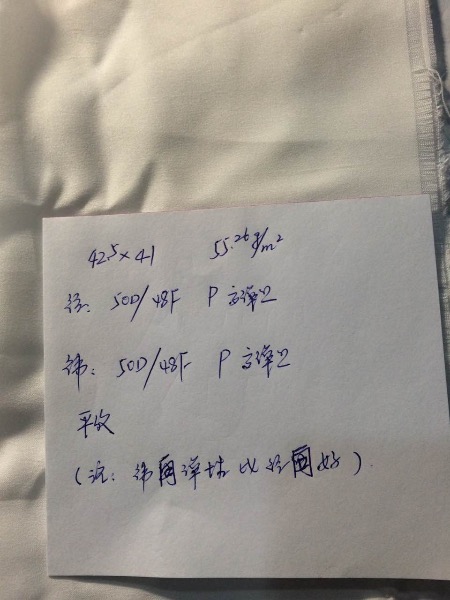 42.5×41 55.26g/m²
经: 50D/48F P 高弹丝
纬: 50D/48F P 高弹丝
平纹
(注: 纬向弹性比经向好).